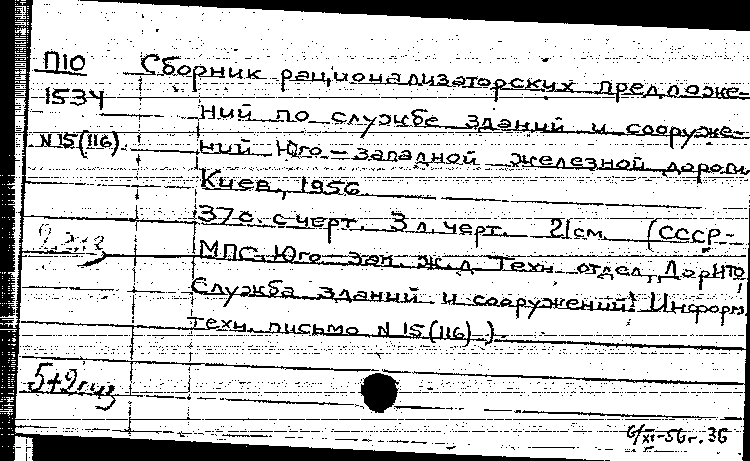 П10 Сборник рационализаторских предложе-
1534 ний по службе зданий и сооруже-
N 15(116). ний Юго-Западной железной дороги
Киев, 1956
37с. с черт. 3 л. черт. 21см (СССР-
МПС. Юго-Зап. ж.д. Техн. отдел, ДорНТО,
Служба зданий и сооружений! Информ.
техн. письмо N 15(116).)
5+2
6/XI-56г. 36